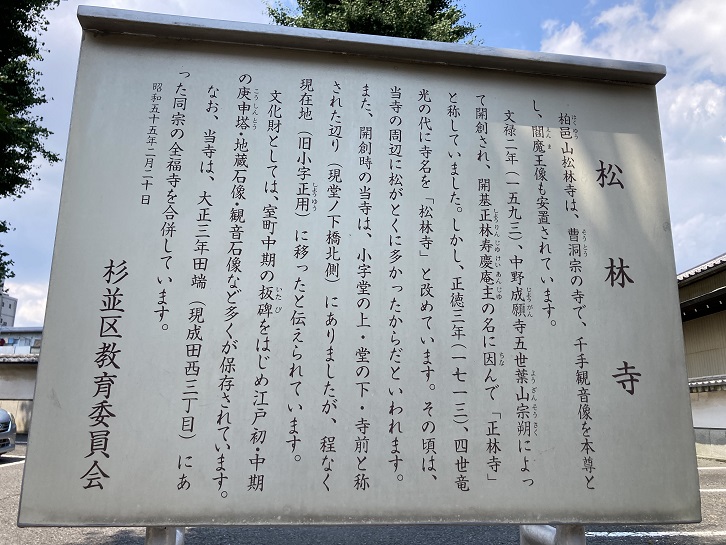 松林寺
柏邑山松林寺は、曹洞宗の寺で、千手観音像を本尊と
し、閻魔王像も安置されています。
文禄二年（一五九三）、中野成願寺五世葉山宗朔によっ
て開創され、開基正林寿慶庵主の名に因んで「正林寺」
と称していました。しかし、正徳三年（一七一三）、四世竜
光の代に寺名を「松林寺」と改めています。その頃は、
当寺の周辺に松がとくに多かったからだといわれます。
また、開創時の当寺は、小字堂の上・堂の下・寺前と称
された辺り（現堂ノ下橋北側）にありましたが、程なく
現在地（旧小字正用）に移ったと伝えられています。
文化財としては、室町中期の板碑をはじめ江戸初・中期
の庚申塔・地蔵石像・観音石像など多くが保存されています。
なお、当寺は、大正三年田端（現成田西三丁目）にあ
った同宗の全福寺を合併しています。
昭和五十五年二月二十日
杉並区教育委員会